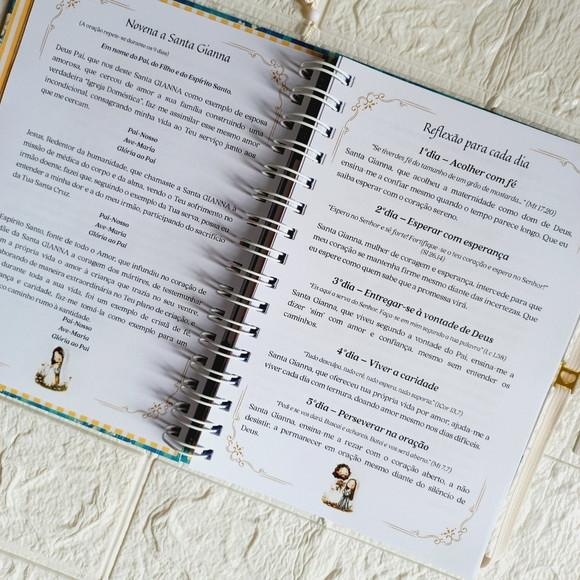 Novena a Santa Gianna
(A oração repete-se durante os 9 dias)
Em nome do Pai, do Filho e do Espírito Santo.
Deus Pai, que nos deste Santa GIANNA como exemplo de esposa
amorosa, que cercou de amor a sua família construindo uma
verdadeira "Igreja Doméstica", faz-me assimilar esse mesmo amor
incondicional, consagrando minha vida ao Teu serviço junto aos
que me cercam.
Pai-Nosso
Ave-Maria
Glória ao Pai
Jesus, Redentor da humanidade, que chamaste a Santa GIANNA à
missão de médica do corpo e da alma, vendo o Teu sofrimento no
irmão doente, fazei que, seguindo o exemplo da Tua serva, possa eu
entender a minha dor e a do meu irmão, participando do sacrifício
da Tua Santa Cruz.
Pai-Nosso
Ave-Maria
Glória ao Pai
Espírito Santo, fonte de todo o Amor, que infundiu no coração de
mãe da Santa GIANNA a coragem dos mártires, de testemunhar
com a própria vida o amor à criança que trazia no seu ventre,
colaborando de maneira extraordinária no Teu plano de criação, e
durante toda a sua vida, foi um exemplo de cristã de fé,
esperança e caridade, faz-me tomá-la como exemplo para um
caminho rumo à santidade.
Pai-Nosso
Ave-Maria
Glória ao Pai
Reflexão para cada dia
1ºdia – Acolher com fé
"Se tiverdes fé do tamanho de um grão de mostarda..." (Mt 17,20)
Santa Gianna, que acolheu a maternidade como dom de Deus,
ensina-me a confiar mesmo quando o tempo parece longo. Que eu
saiba esperar com o coração sereno.
2ºdia – Esperar com esperança
"Espera no Senhor e sê forte! Fortifique-se o teu coração e espera no Senhor!"
(Sl 26,14)
Santa Gianna, mulher de coragem e esperança, intercede para que
meu coração se mantenha firme mesmo diante das incertezas. Que
eu espere como quem sabe que a promessa virá.
3ºdia – Entregar-se à vontade de Deus
"Eis aqui a serva do Senhor. Faça-se em mim segundo a tua palavra" (Lc 1,38)
Santa Gianna, que viveu segundo a vontade do Pai, ensina-me a
dizer "sim" com amor e confiança, mesmo sem entender os
caminhos.
4ºdia – Viver a caridade
"Tudo desculpa, tudo crê, tudo espera, tudo suporta." (1Cor 13,7)
Santa Gianna, que ofereceu tua própria vida por amor, ajuda-me a
viver cada dia com ternura, doando amor mesmo nos dias difíceis.
5ºdia – Perseverar na oração
"Pedi e se vos dará. Buscai e achareis. Batei e vos será aberto." (Mt 7,7)
Santa Gianna, ensina-me a rezar com o coração aberto, a não
desistir, a permanecer em oração mesmo diante do silêncio de
Deus.